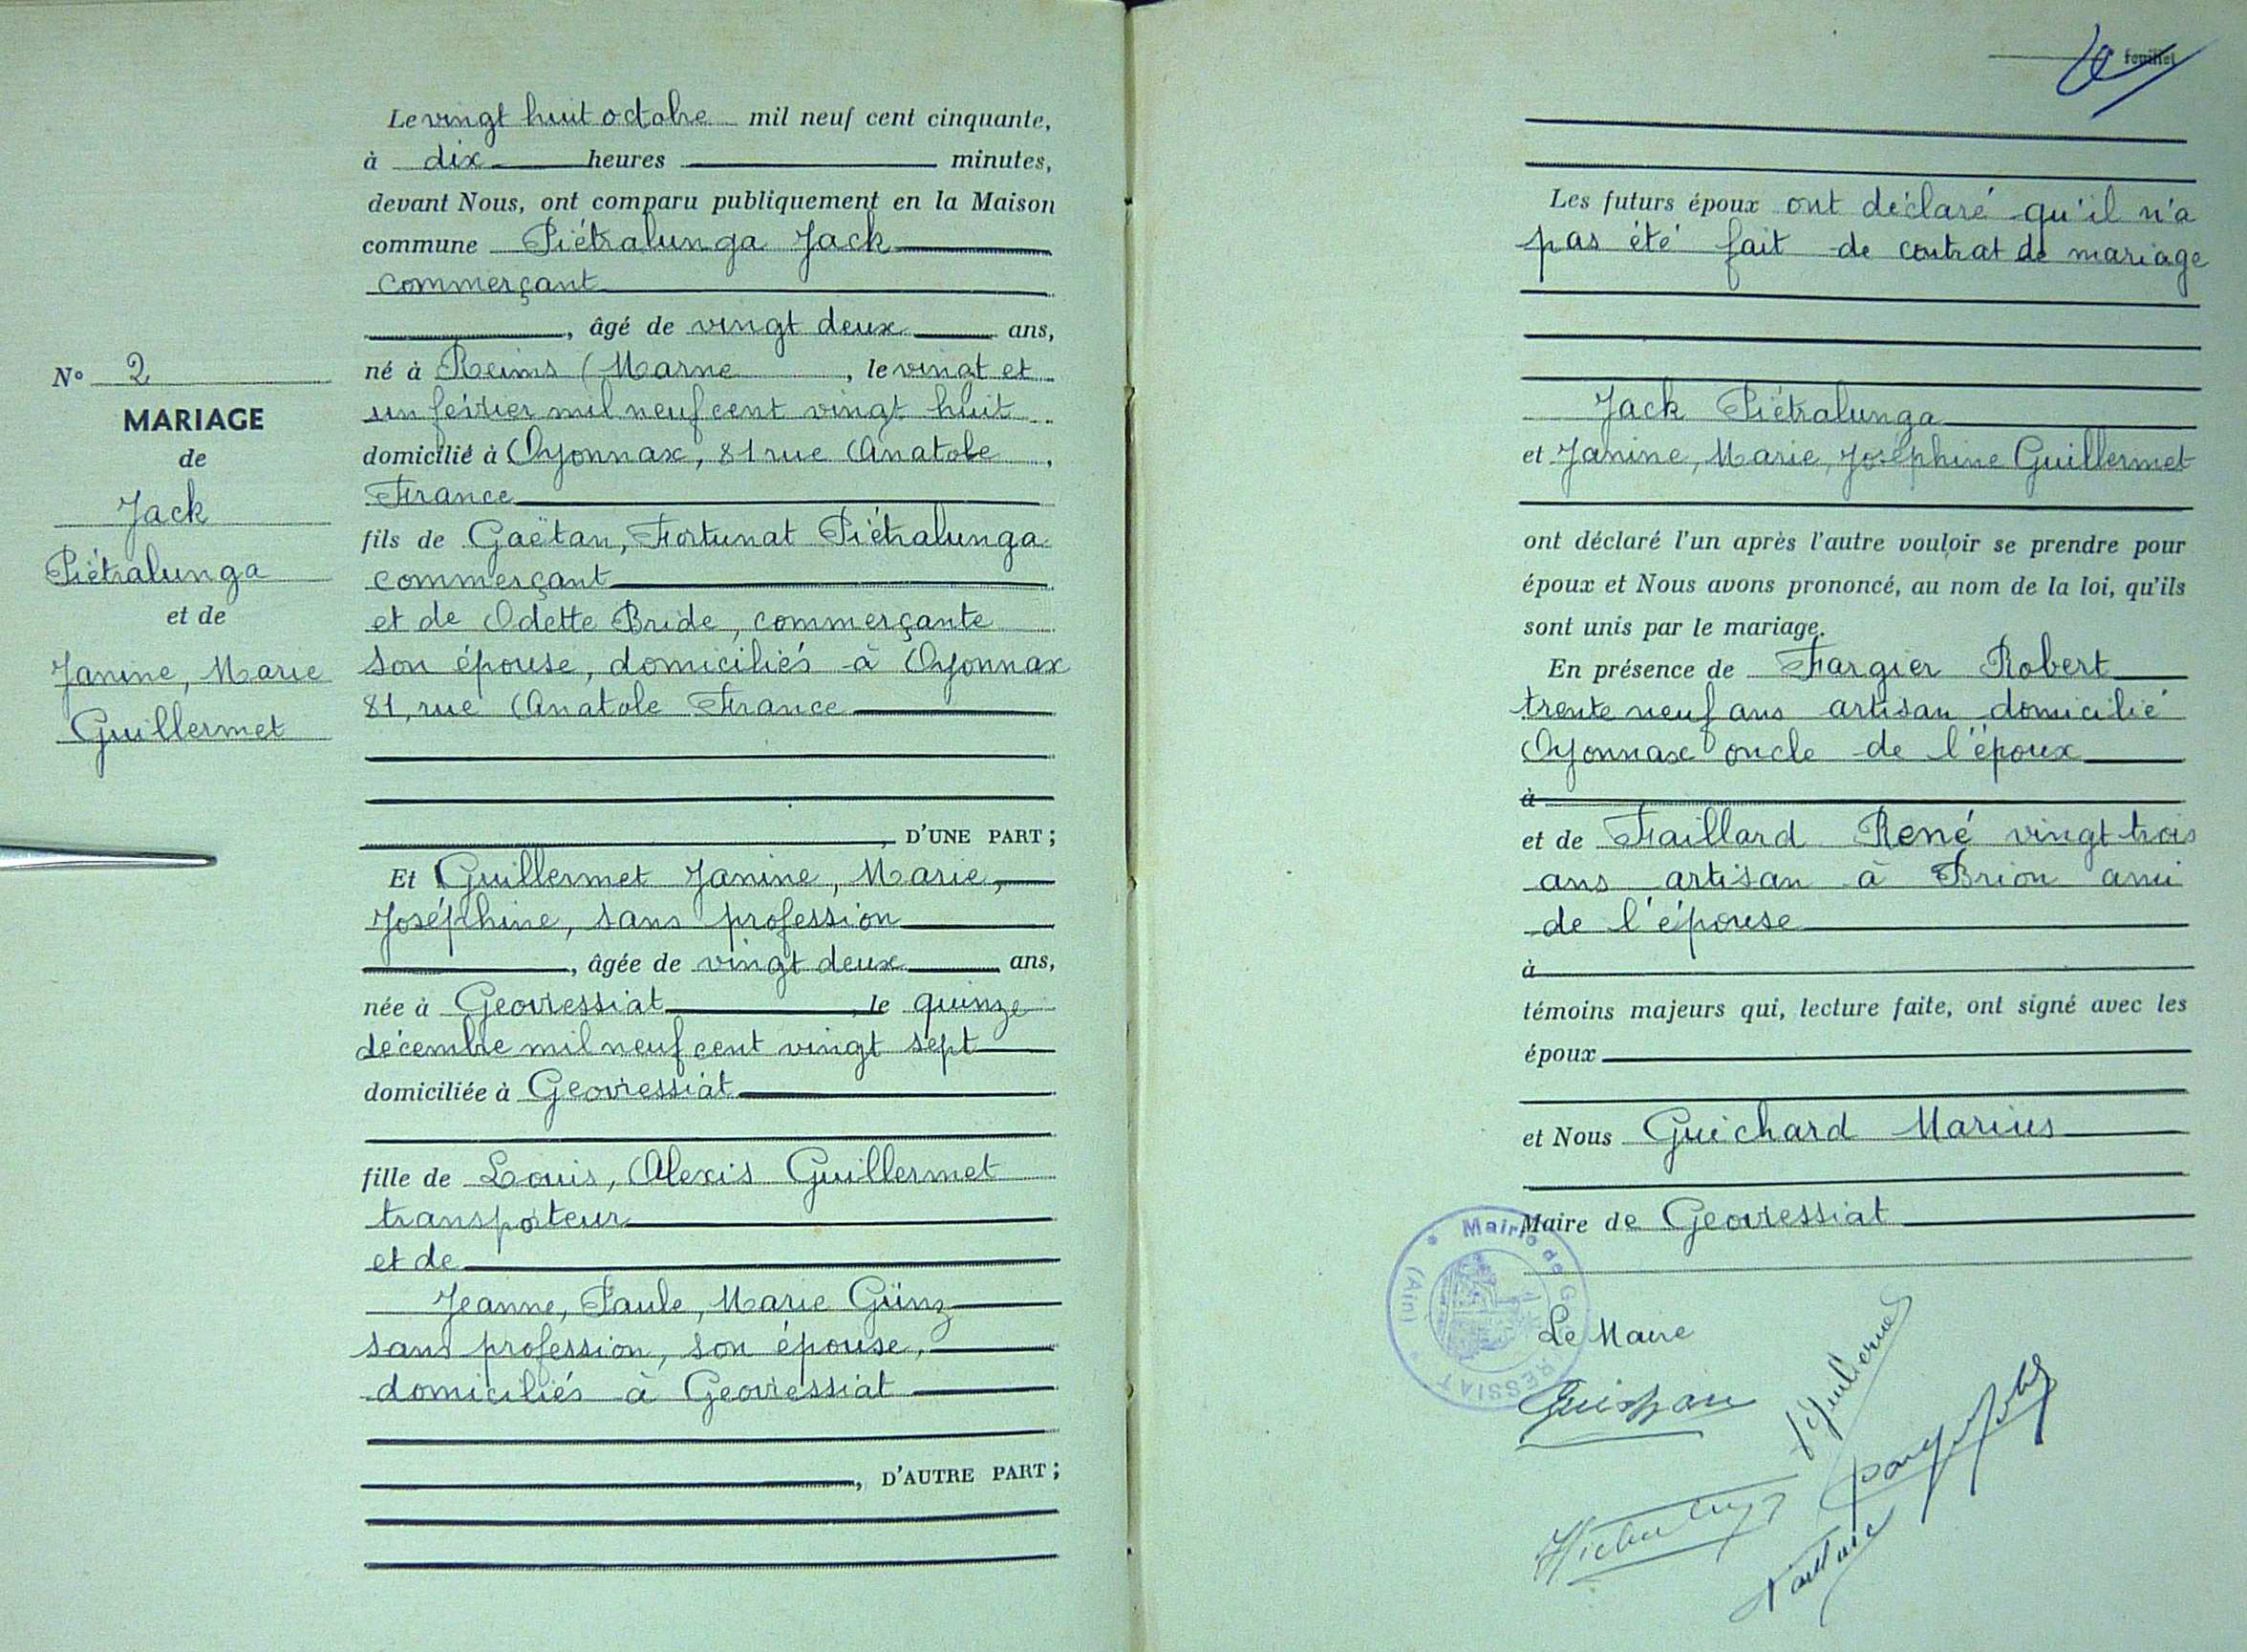 Le vingt huit octobre mil neuf cent cinquante,
à dix heures minutes,
devant Nous, ont comparu publiquement en la Maison
commune Piétralunga Jack
commerçant
, âgé de vingt deux ans,
né à Reims (Marne , le vingt et
un février mil neuf cent vingt huit
domicilié à Oyonnax, 81 rue Anatole ,
France
fils de Gaëtan, Fortunat Piétralunga
commerçant
et de Odette Bride, commerçante
son épouse, domiciliés à Oyonnax
81, rue Anatole France
, D'UNE PART ;
Et Guillermet Janine, Marie,
Joséphine, sans profession
, âgée de vingt deux ans,
née à Geovressiat , le quinze
décembre mil neuf cent vingt sept
domiciliée à Geovressiat
fille de Louis, Alexis Guillermet
transporteur
et de
Jeanne, Paule, Marie Günz
sans profession, son épouse,
domiciliés à Geovressiat
, D'AUTRE PART ;
N° 2
MARIAGE
de
Jack
Piétralunga
et de
Janine, Marie
Guillermet
feuillet
Les futurs époux ont déclaré qu'il n'a
pas été fait de contrat de mariage
Jack Piétralunga
et Janine, Marie, Joséphine Guillermet
ont déclaré l'un après l'autre vouloir se prendre pour
époux et Nous avons prononcé, au nom de la loi, qu'ils
sont unis par le mariage.
En présence de Fargier Robert
trente neuf ans artisan domicilié
Oyonnax oncle de l'époux
à
et de Faillard René vingt trois
ans artisan à Brion ami
de l'épouse
à
témoins majeurs qui, lecture faite, ont signé avec les
époux
et Nous Guichard Marius
Maire de Geovressiat
Mairie de G RESSIAT (Ain)
Le Maire